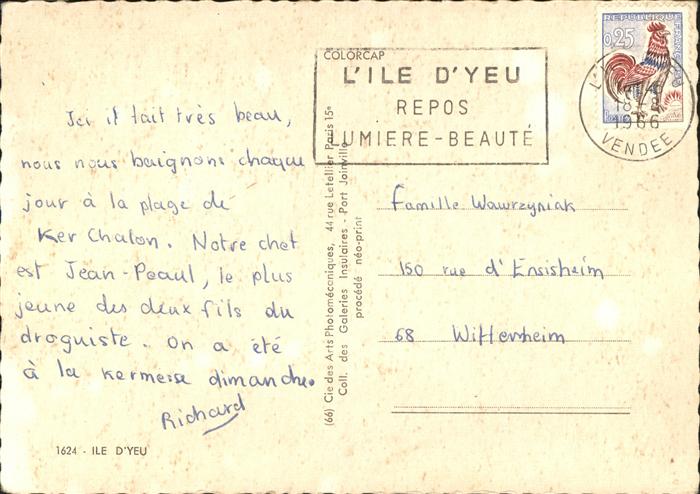 COLORCAP
L'ILE D'YEU
REPOS
LUMIERE-BEAUTÉ
REPUBLIQUE FRANÇAISE
0,25
18-8
1966
VENDEE
Ici il fait très beau,
nous nous baignons chaque
jour à la plage de
Ker Chalon. Notre chef
est Jean-Peaul, le plus
jeune des deux fils du
droguiste. On a été
à la kermesse dimanche.
Richard
1624 - ILE D'YEU
(66) Cie des Arts Photomécaniques, 44 rue Letellier Paris 15e
Coll. des Galeries Insulaires - Port Joinville
procédé néo-print
Famille Wawrzyniak
150 rue d'Ensisheim
68 Wittersheim